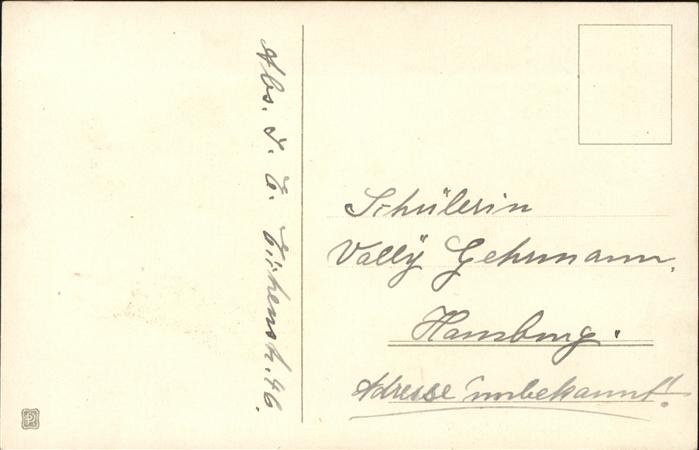 Abs. J. C. 46.
Schülerin
Vally Gehrmann,
Hamburg.
Adresse unbekannt!